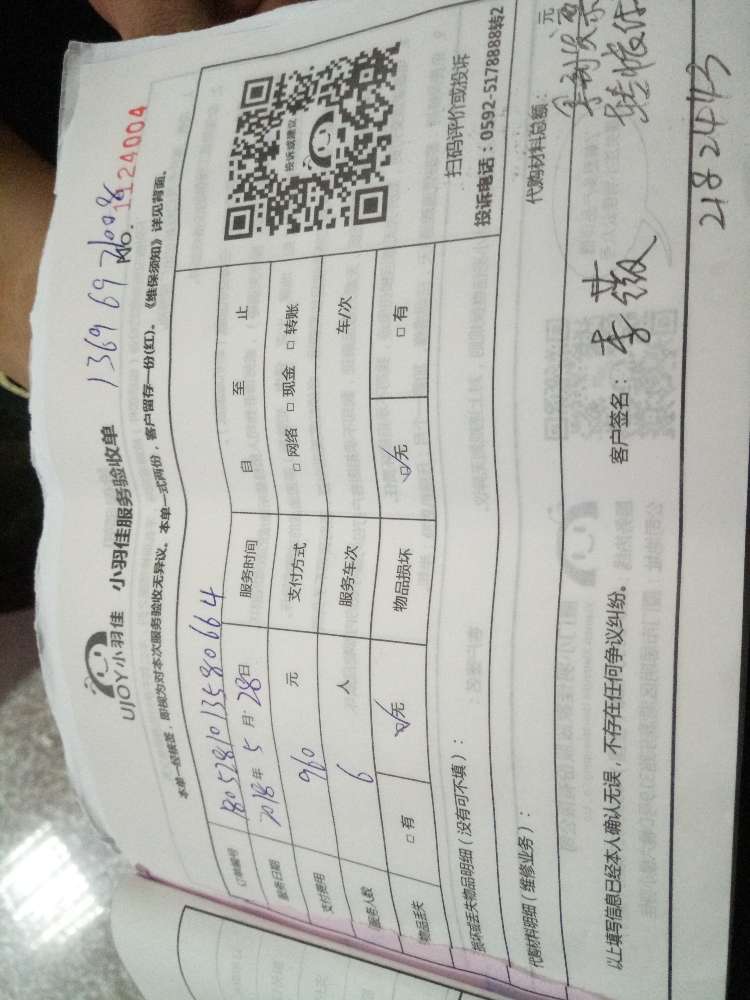 UJOY小羽佳 小羽佳服务验收单
136 9697008
No. 1124004
本单一经核签，即视为对本次服务验收无异议。本单一式两份，客户留存一份(红)。《维保须知》详见背面。
订单编号 180528101358066 4
服务日期 2018年 5 月 28日 服务时间 自 至 止
支付费用 960 元 支付方式 □ 网络 □ 现金 □ 转账
服务人数 6 人 服务车次 车/次
物品丢失 □ 有 ☑无 物品损坏 ☑无 □ 有
投诉或建议
扫码评价或投诉
投诉电话：0592-5178888转2
损坏或丢失物品明细（没有可不填）：
代购材料明细（维修业务）： 代购材料总额： 元
以上填写信息已经本人确认无误，不存在任何争议纠纷。 客户签名：李薇
2182443